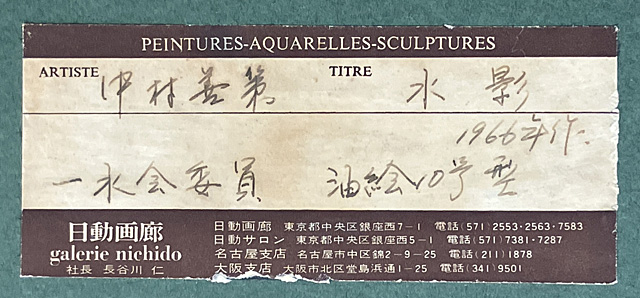 PEINTURES-AQUARELLES-SCULPTURES
ARTISTE 中村善策 TITRE 水影
1966年作.
一水会委員 油絵10号型
日動画廊
galerie nichido
社長 長谷川 仁
日動画廊 東京都中央区銀座西7-1 電話(571)2553·2563·7583
日動サロン 東京都中央区銀座西5-1 電話(571)7381·7287
名古屋支店 名古屋市中区錦2-9-25 電話(211)1878
大阪支店 大阪市北区堂島浜通1-25 電話(341)9501